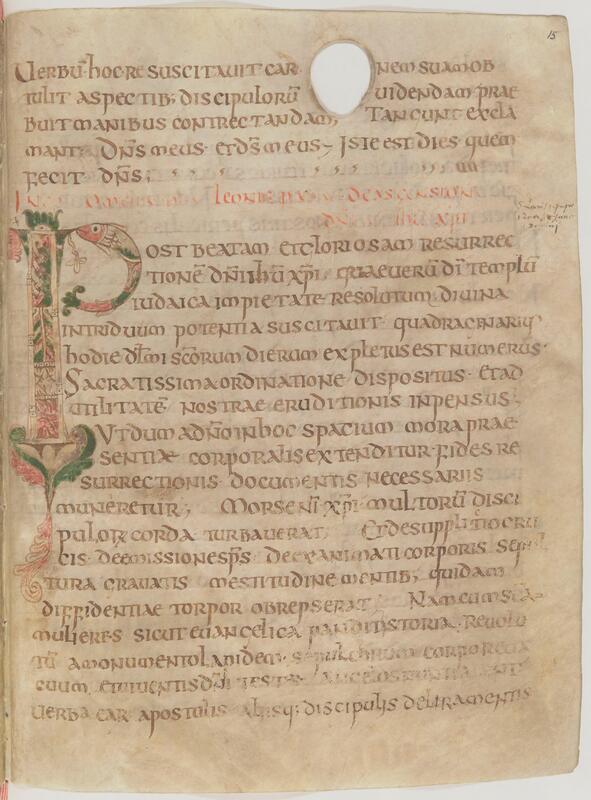 15
Uerbū hoc resuscitauit car nem suam ob
tulit aspectib; discipulorū uidendam prae
buit manibus contrectandam, Tancunt excla
mant Dn̄s meus et ds̄ meus, Iste est dies quem
fecit dn̄s;
leonis papae de ascensione
dn̄i ihū xp̄i
Post beatam et gloriosam resurrec
tionē dn̄i ihū xp̄i, quae uerū dī templū
iudaica impietate resolutum diuina
in triduum potentia suscitauit quadragenariu
hodie dilmi sc̄orum dierum expletus est numerus.
Sacratissima ordinatione dispositus et ad
utilitatē nostrae eruditionis inpensus;
Ut dum ad n̄o in hoc spacium mora prae
sentiae corporalis extenditur, fides re
surrectionis documentis necessariis
muneretur; Mors en̄i xp̄i multorū disci
pulorꝝ corda turbauerat, Et de supplitio cru
cis de emissione sp̄s de exanimati corporis sepul
tura grauatis mestitudine mentib; quidam
diffidentiae torpor obrepserat; Nam cum sc̄ae
mulieres sicut euangelica pandit istoria, reuolu
tū a monumento lapidem sepulchrum corpore ua
cuum, et uiuentis dn̄i testes angelos nuntiarent
uerba ear apostolis aliisq; discipulis deliramentis